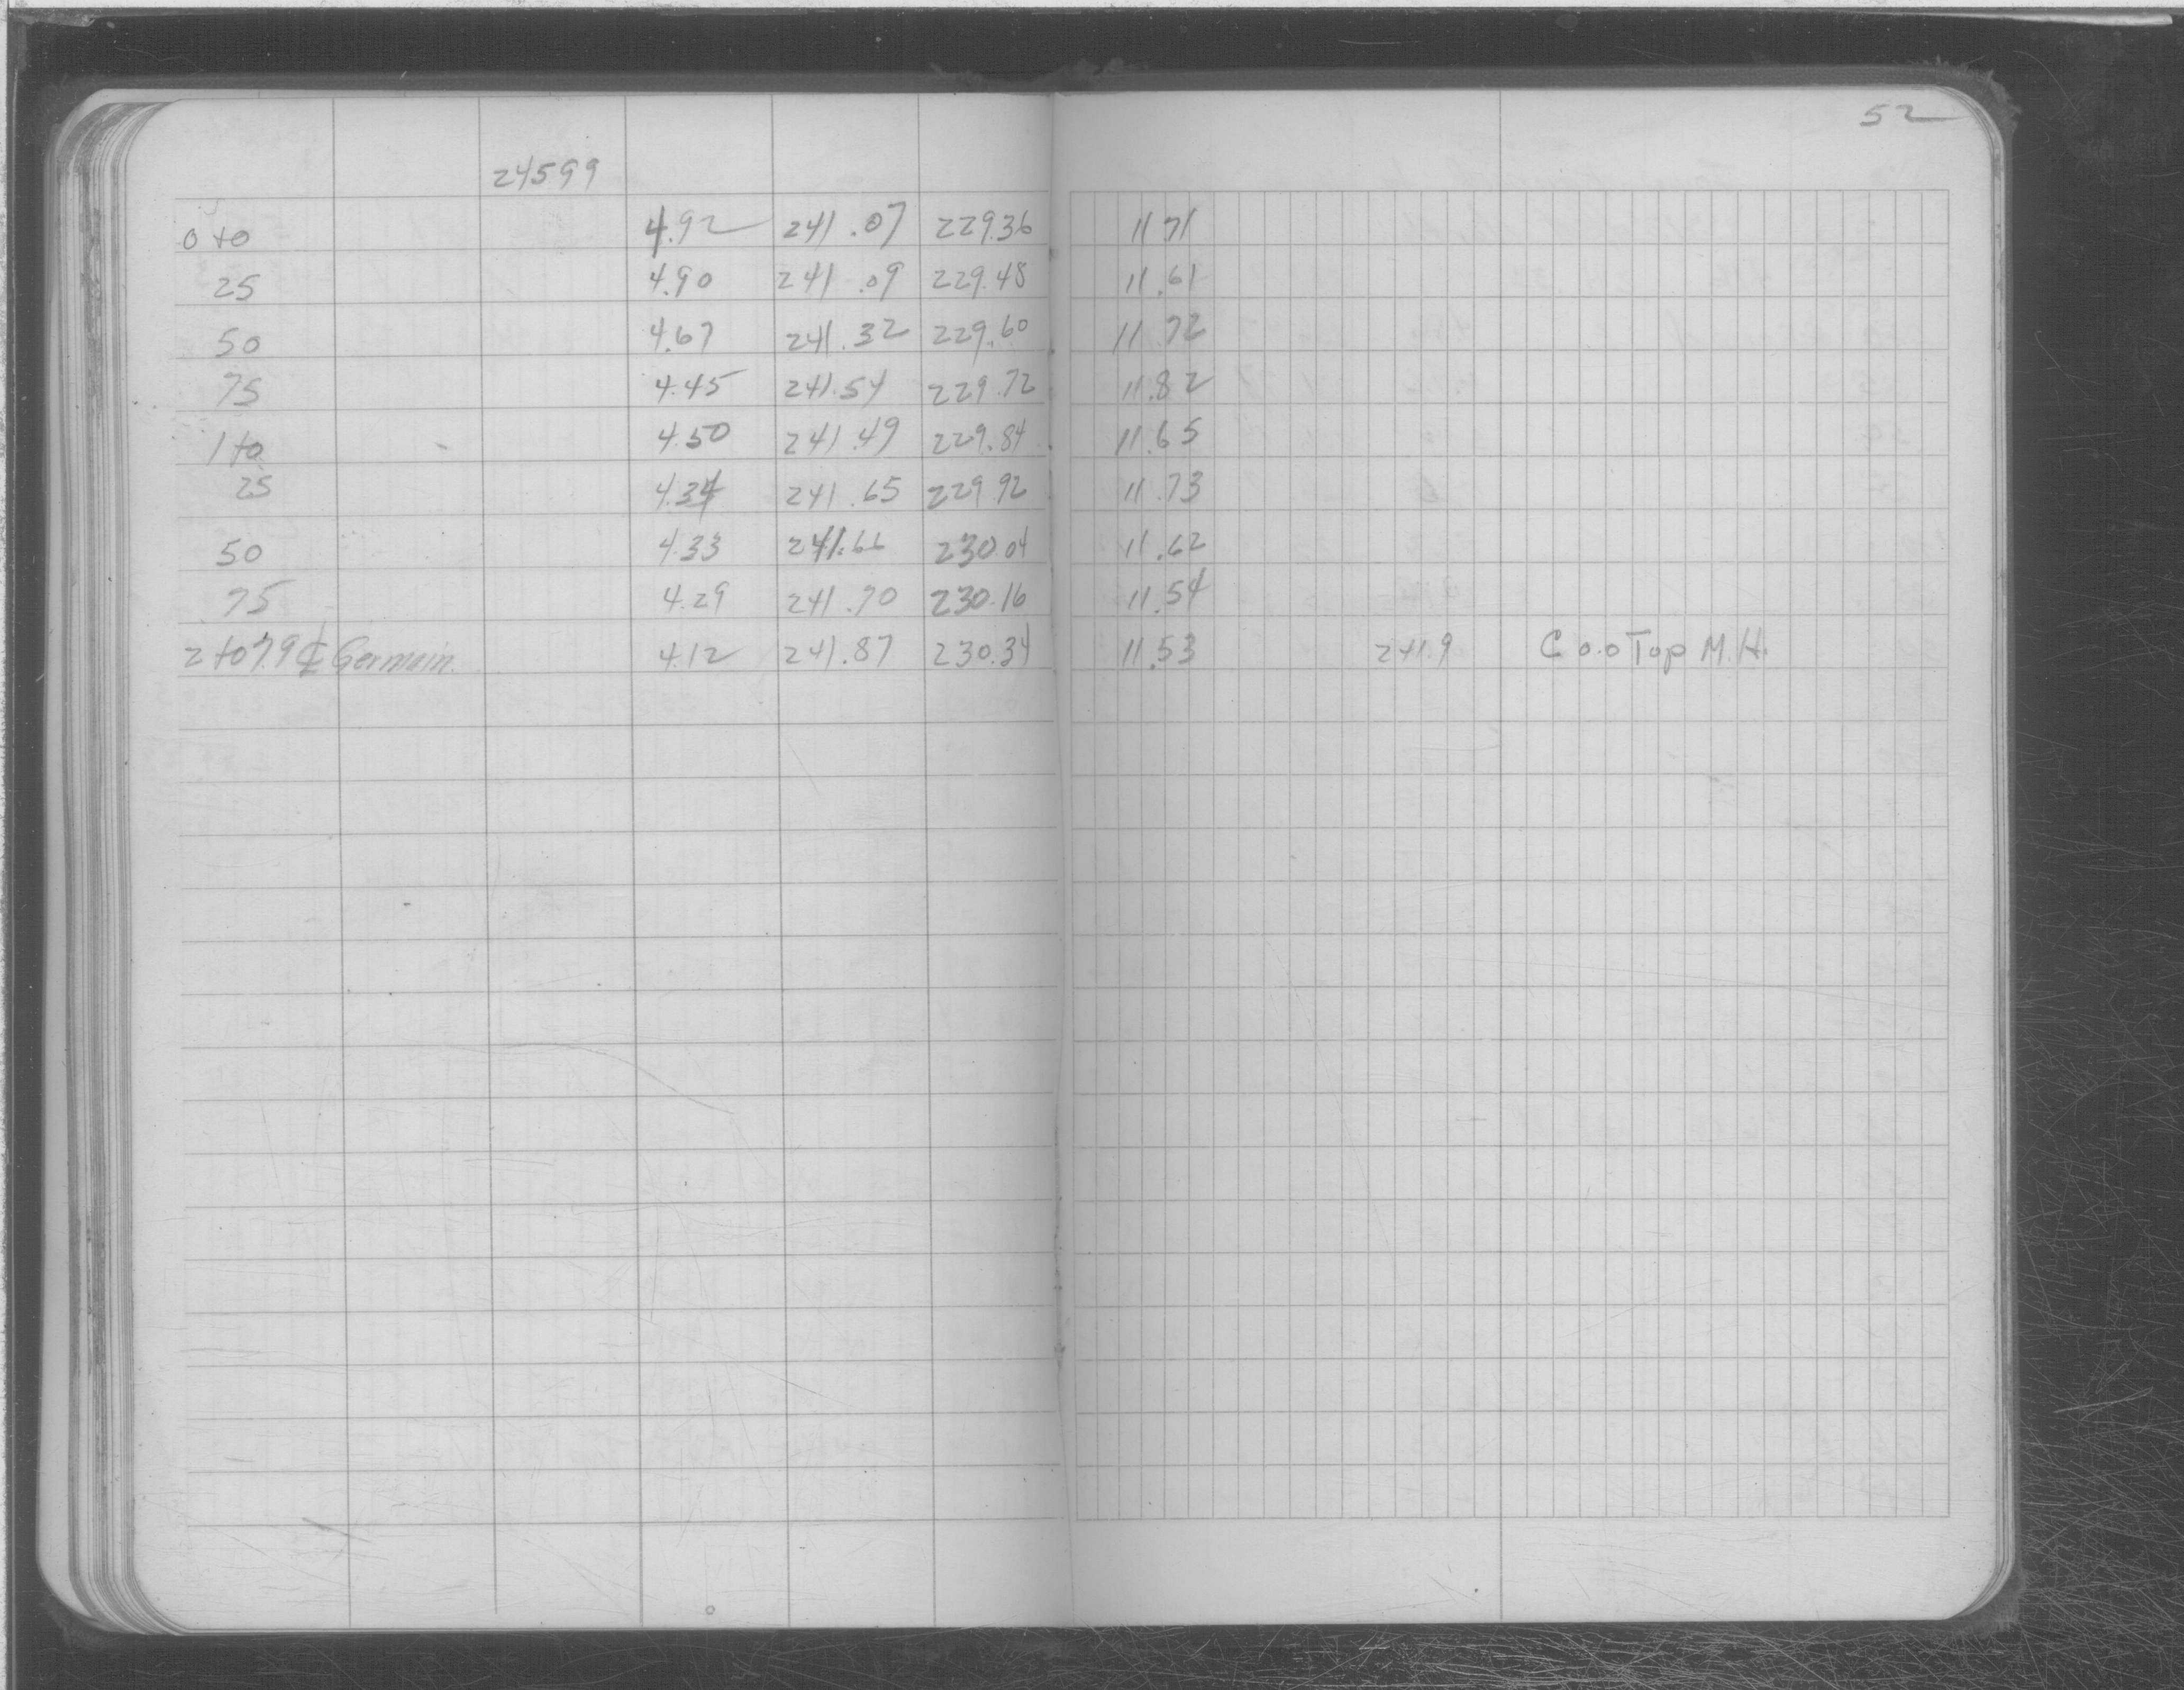 52
24599
0+0 4.92 241.07 229.36 11.71
25 4.90 241.09 229.48 11.61
50 4.67 241.32 229.60 11.72
75 4.45 241.54 229.72 11.82
1+0 4.50 241.49 229.84 11.65
25 4.34 241.65 229.92 11.73
50 4.33 241.66 230.04 11.62
75 4.29 241.70 230.16 11.54
2+07.9 ℄ Germain. 4.12 241.87 230.34 11.53 241.9 C 0.0 Top M.H.